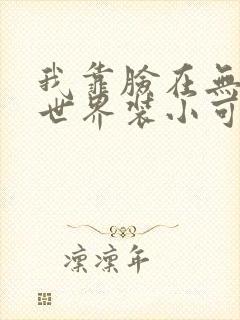 我靠臉在無
世界裝小可
凜凜年